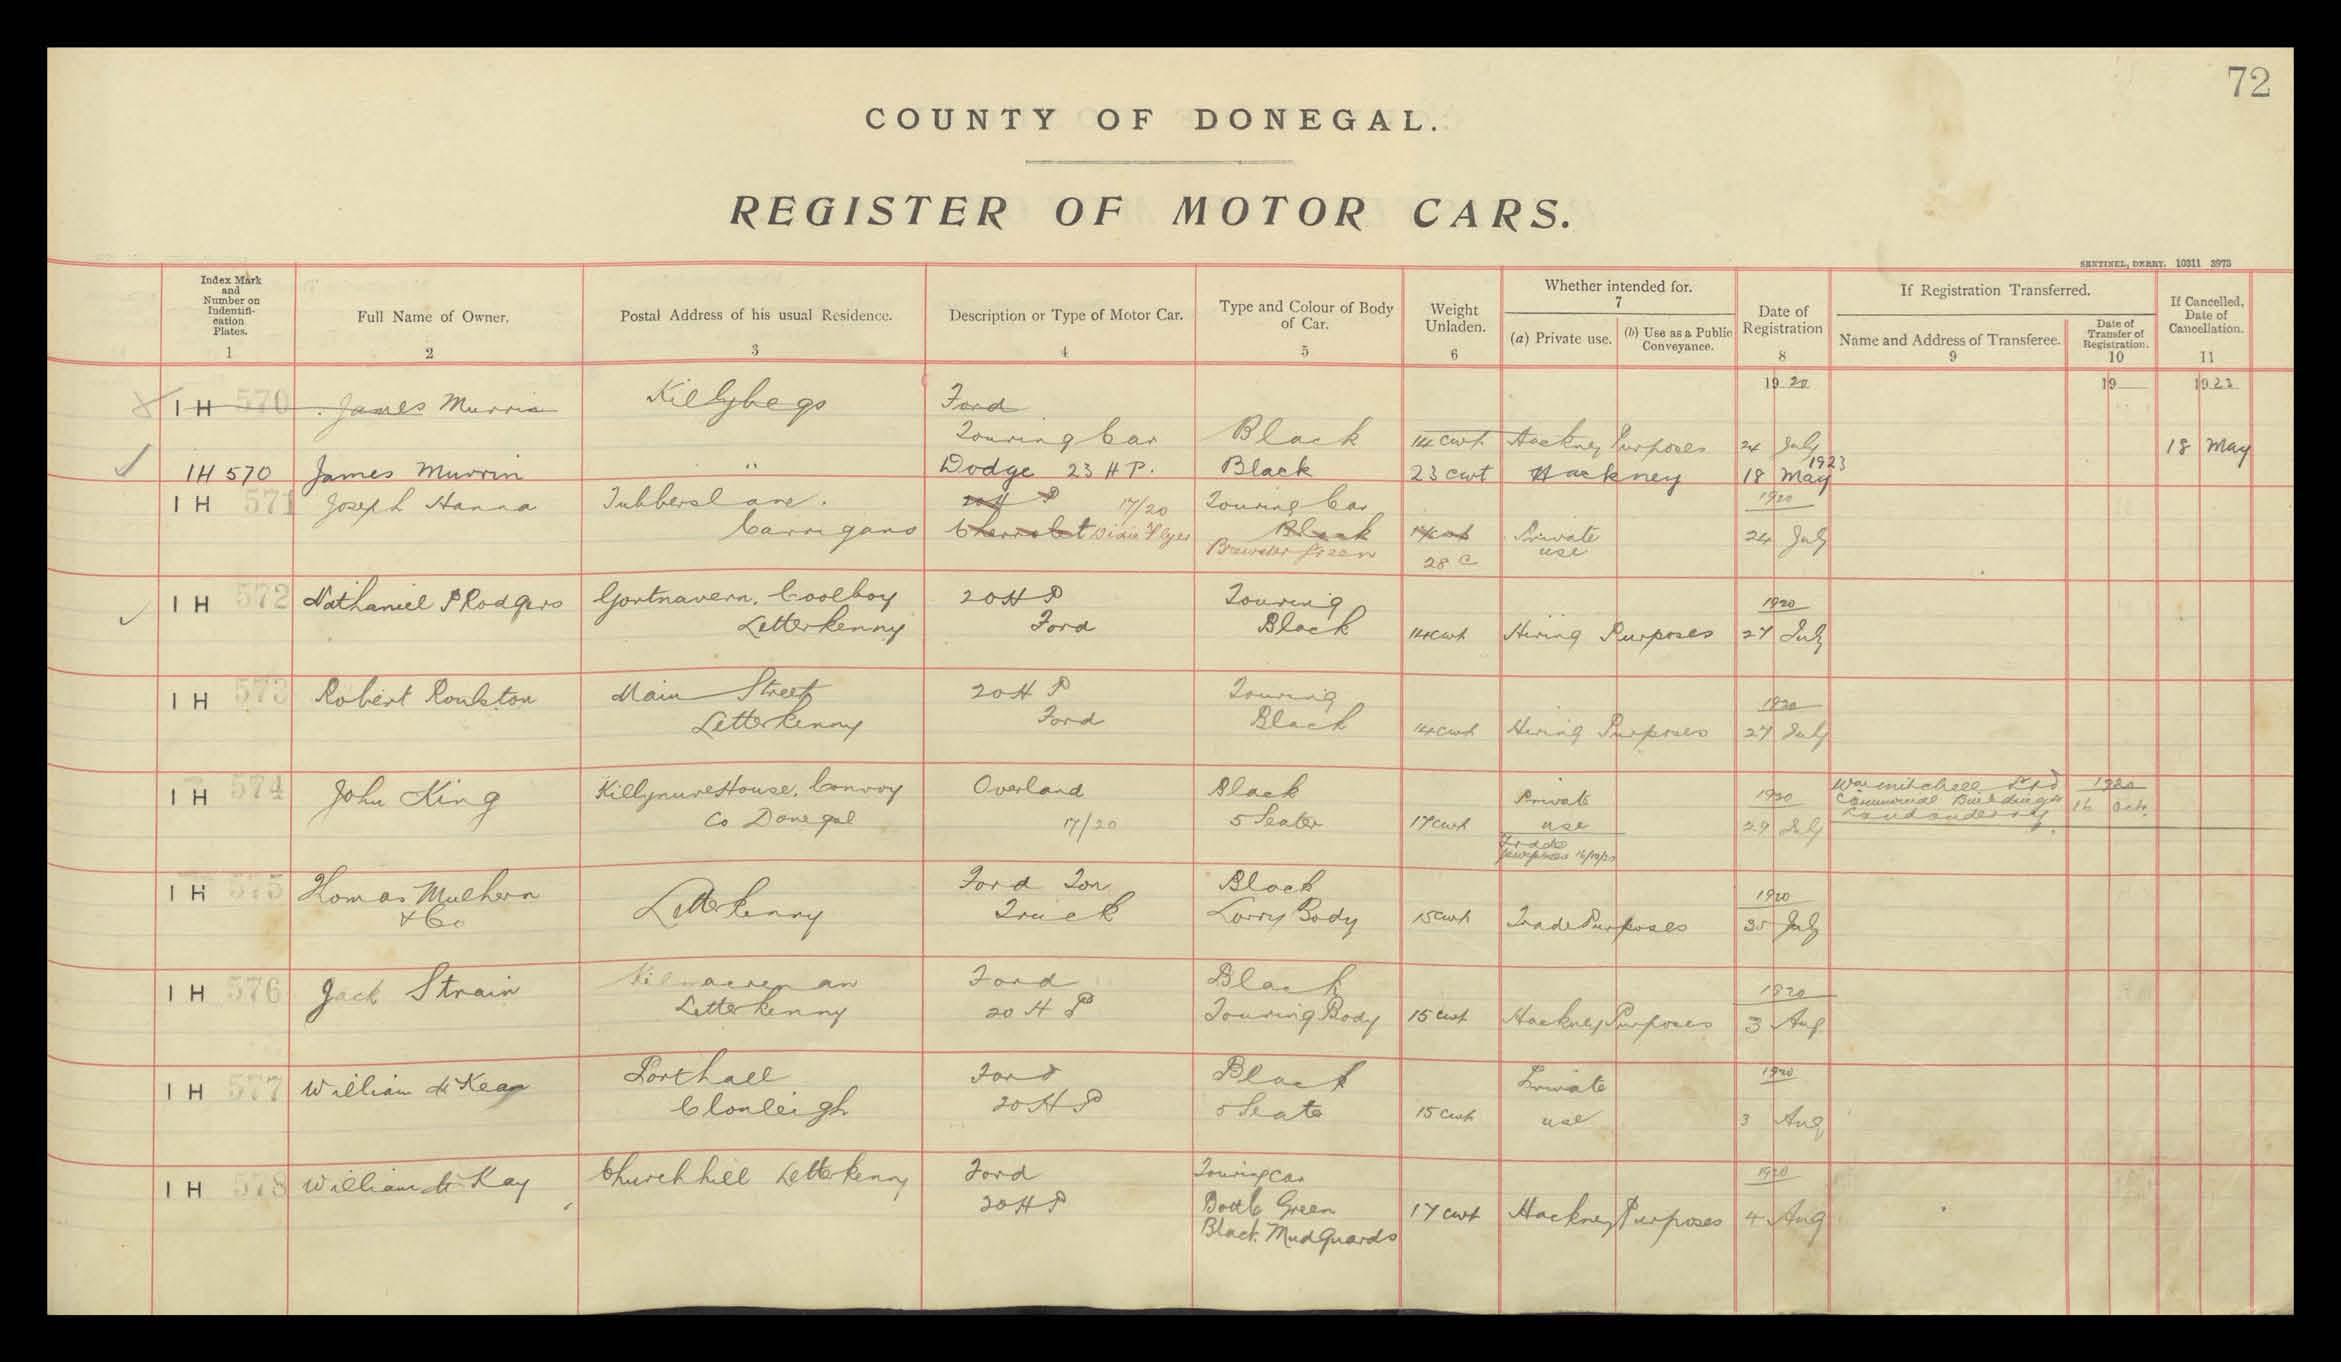 72
COUNTY OF DONEGAL.
REGISTER OF MOTOR CARS.
SENTINEL, DERRY. 10311 3973
Index Mark and Number on Indentifi-cation Plates. 1
Full Name of Owner. 2
Postal Address of his usual Residence. 3
Description or Type of Motor Car. 4
Type and Colour of Body of Car. 5
Weight Unladen. 6
Whether intended for. 7
(a) Private use.
(b) Use as a Public Conveyance.
Date of Registration 8
If Registration Transferred.
Name and Address of Transferee. 9
Date of Transfer of Registration. 10
If Cancelled, Date of Cancellation. 11
1920 19 1923
IH 570 James Murrin Killybegs Ford
Touring Car Black 14 cwt Hackney Purposes 24 July 18 May
1923
IH 570 James Murrin " Dodge 23 HP. Black 23 cwt Hackney 18 May
IH 571 Joseph Hanna Tubberslane. 20 H P 17/20 Touring Car 1920
Carrigans Chevrolet Dixie Flyer Black 14 cwt Private use 24 July
Brewster Green 28 C
IH 572 Nathaniel P Rodgers Gortnavern, Coolboy 20 H P Touring 1920
Letterkenny Ford Black 14 cwt Hiring Purposes 27 July
IH 573 Robert Roulston Main Street 20 H P Touring 1920
Letterkenny Ford Black 14 cwt Hiring Purposes 27 July
IH 574 John King Killynure House, Convoy Overland Black Private 1920 Wm Mitchell Ltd 1920
Co Donegal 17/20 5 Seater 17 cwt use 29 July Commercial Buildings 16 Oct.
Londonderry
Trade purposes 16/10/20
IH 575 Thomas Mulhern Ford Ton Black 1920
& Co Letterkenny Truck Lorry Body 15 cwt Trade Purposes 30 July
IH 576 Jack Strain Kilmacrenan Ford Black 1920
Letterkenny 20 H P Touring Body 15 cwt Hackney Purposes 3 Aug
IH 577 William McKean Porthall Ford Black Private 1920
Clonleigh 20 H P 5 Seater 15 cwt use 3 Aug
IH 578 William McKay Churchhill Letterkenny Ford Touring Car 1920
20 H P Bottle Green 17 cwt Hackney Purposes 4 Aug
Black Mud Guards